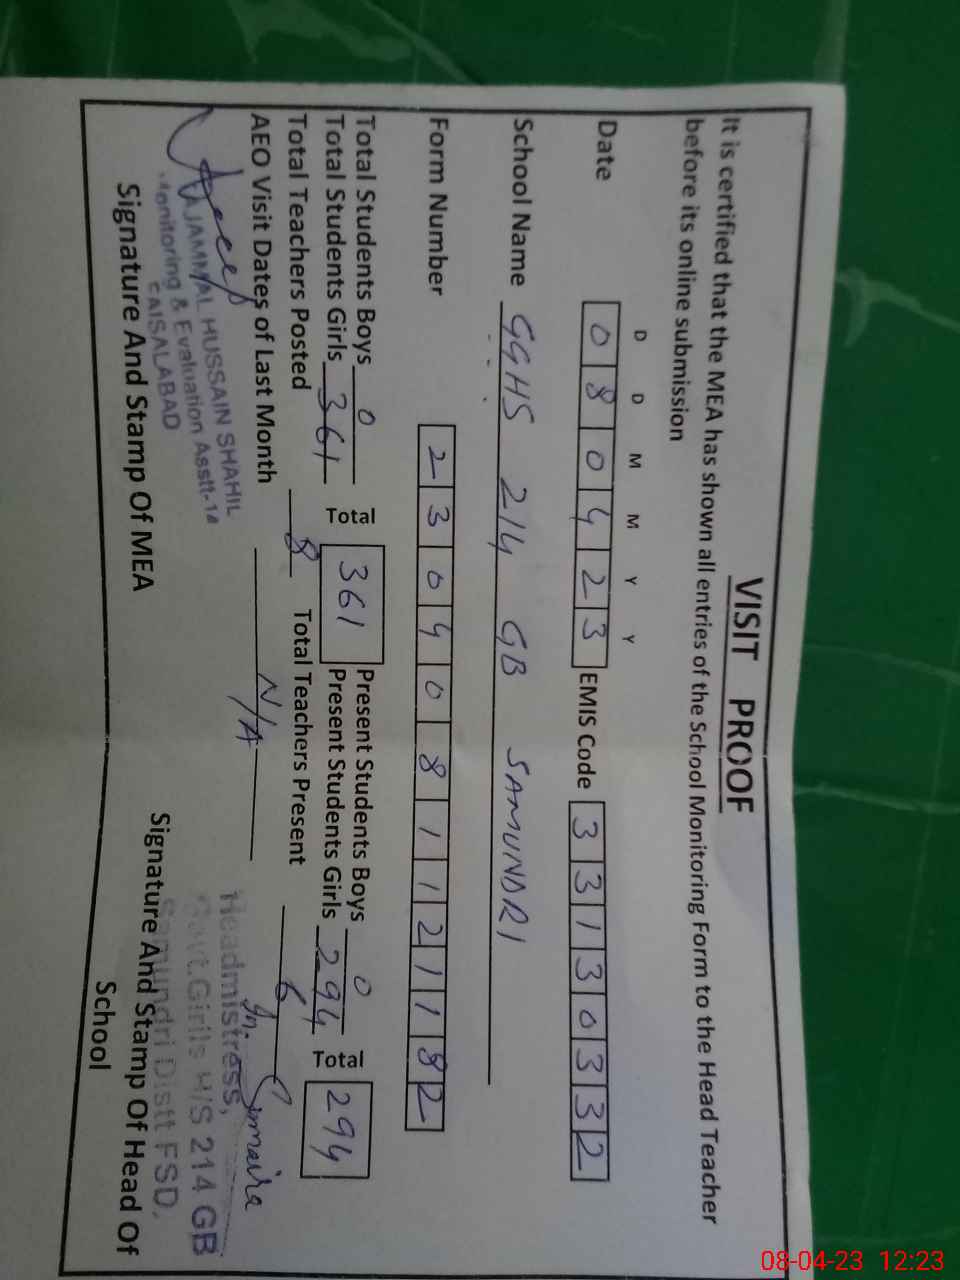 VISIT PROOF
It is certified that the MEA has shown all entries of the School Monitoring Form to the Head Teacher
before its online submission
D D M M Y Y
Date 0 8 0 4 2 3 EMIS Code 3 3 1 3 0 3 3 2
School Name GGHS 214 GB SAMUNDRI
Form Number 2 3 0 4 0 8 1 1 2 1 1 8 2
Total Students Boys 0 Total 361 Present Students Boys 0 Total 294
Total Students Girls 361 Present Students Girls 294
Total Teachers Posted 8 Total Teachers Present 6
AEO Visit Dates of Last Month N/A
TAJAMMAL HUSSAIN SHAHIL
Monitoring & Evaluation Asstt-14
FAISALABAD
Signature And Stamp Of MEA
Headmistress,
Govt.Girils H/S 214 GB
Samundri Distt FSD,
Signature And Stamp Of Head Of
School
08-04-23 12:23